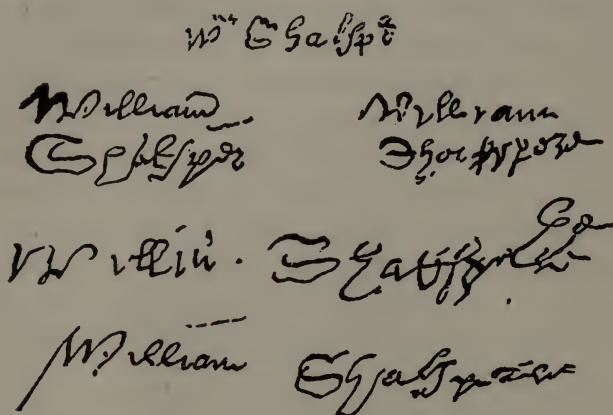 Wm Shakspē
William
Shakspēr
William
Shakspere
William Shakspere
William Shakspeare